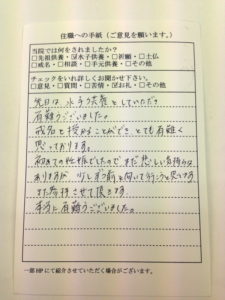 住職への手紙(ご意見を願います。)
当院では何をされましたか?
□先祖供養・☑水子供養・□祈願・□土仏
□戒名・□相談・□手元供養・□その他
チェックをいれ詳しくお聞かせ下さい。
□意見・□質問・□苦情・☑お礼・□その他
先日は水子の供養をしていただき
有難うございました。
戒名を授かることができとても有難く
思っております。
初めての妊娠でしたのでまだ悲しい気持ちは
ありますが 少しずつ前を向いて行こうと思います
また参拝させて頂きます。
本当に有難うございました。
一部HPにて紹介させていただく場合がございます。